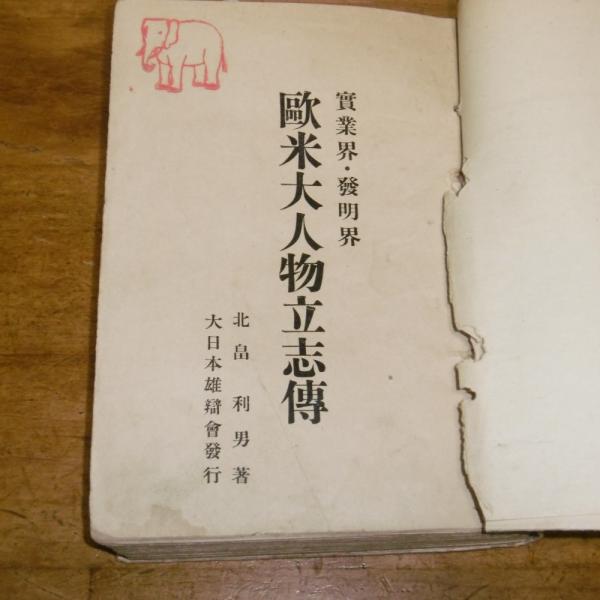 實業界・發明界
歐米大人物立志傳
北畠利男著
大日本雄辯會發行